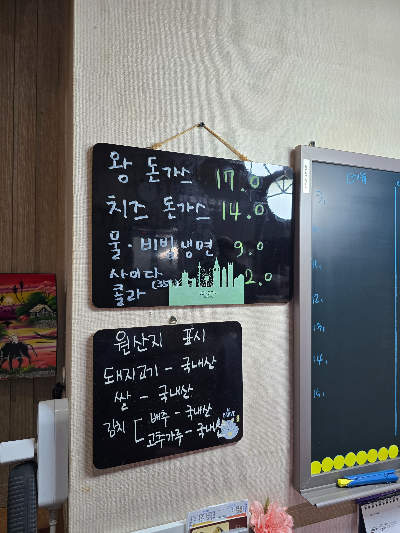 왕 돈가스 17.0
치즈 돈가스 14.0
물·비빔냉면 9.0
사이다
콜라 2.0
원산지 표시
돼지고기 - 국내산
쌀 - 국내산
김치 [ 배추 - 국내산
고추가루 - 국내산
11,
12,
13,
14,